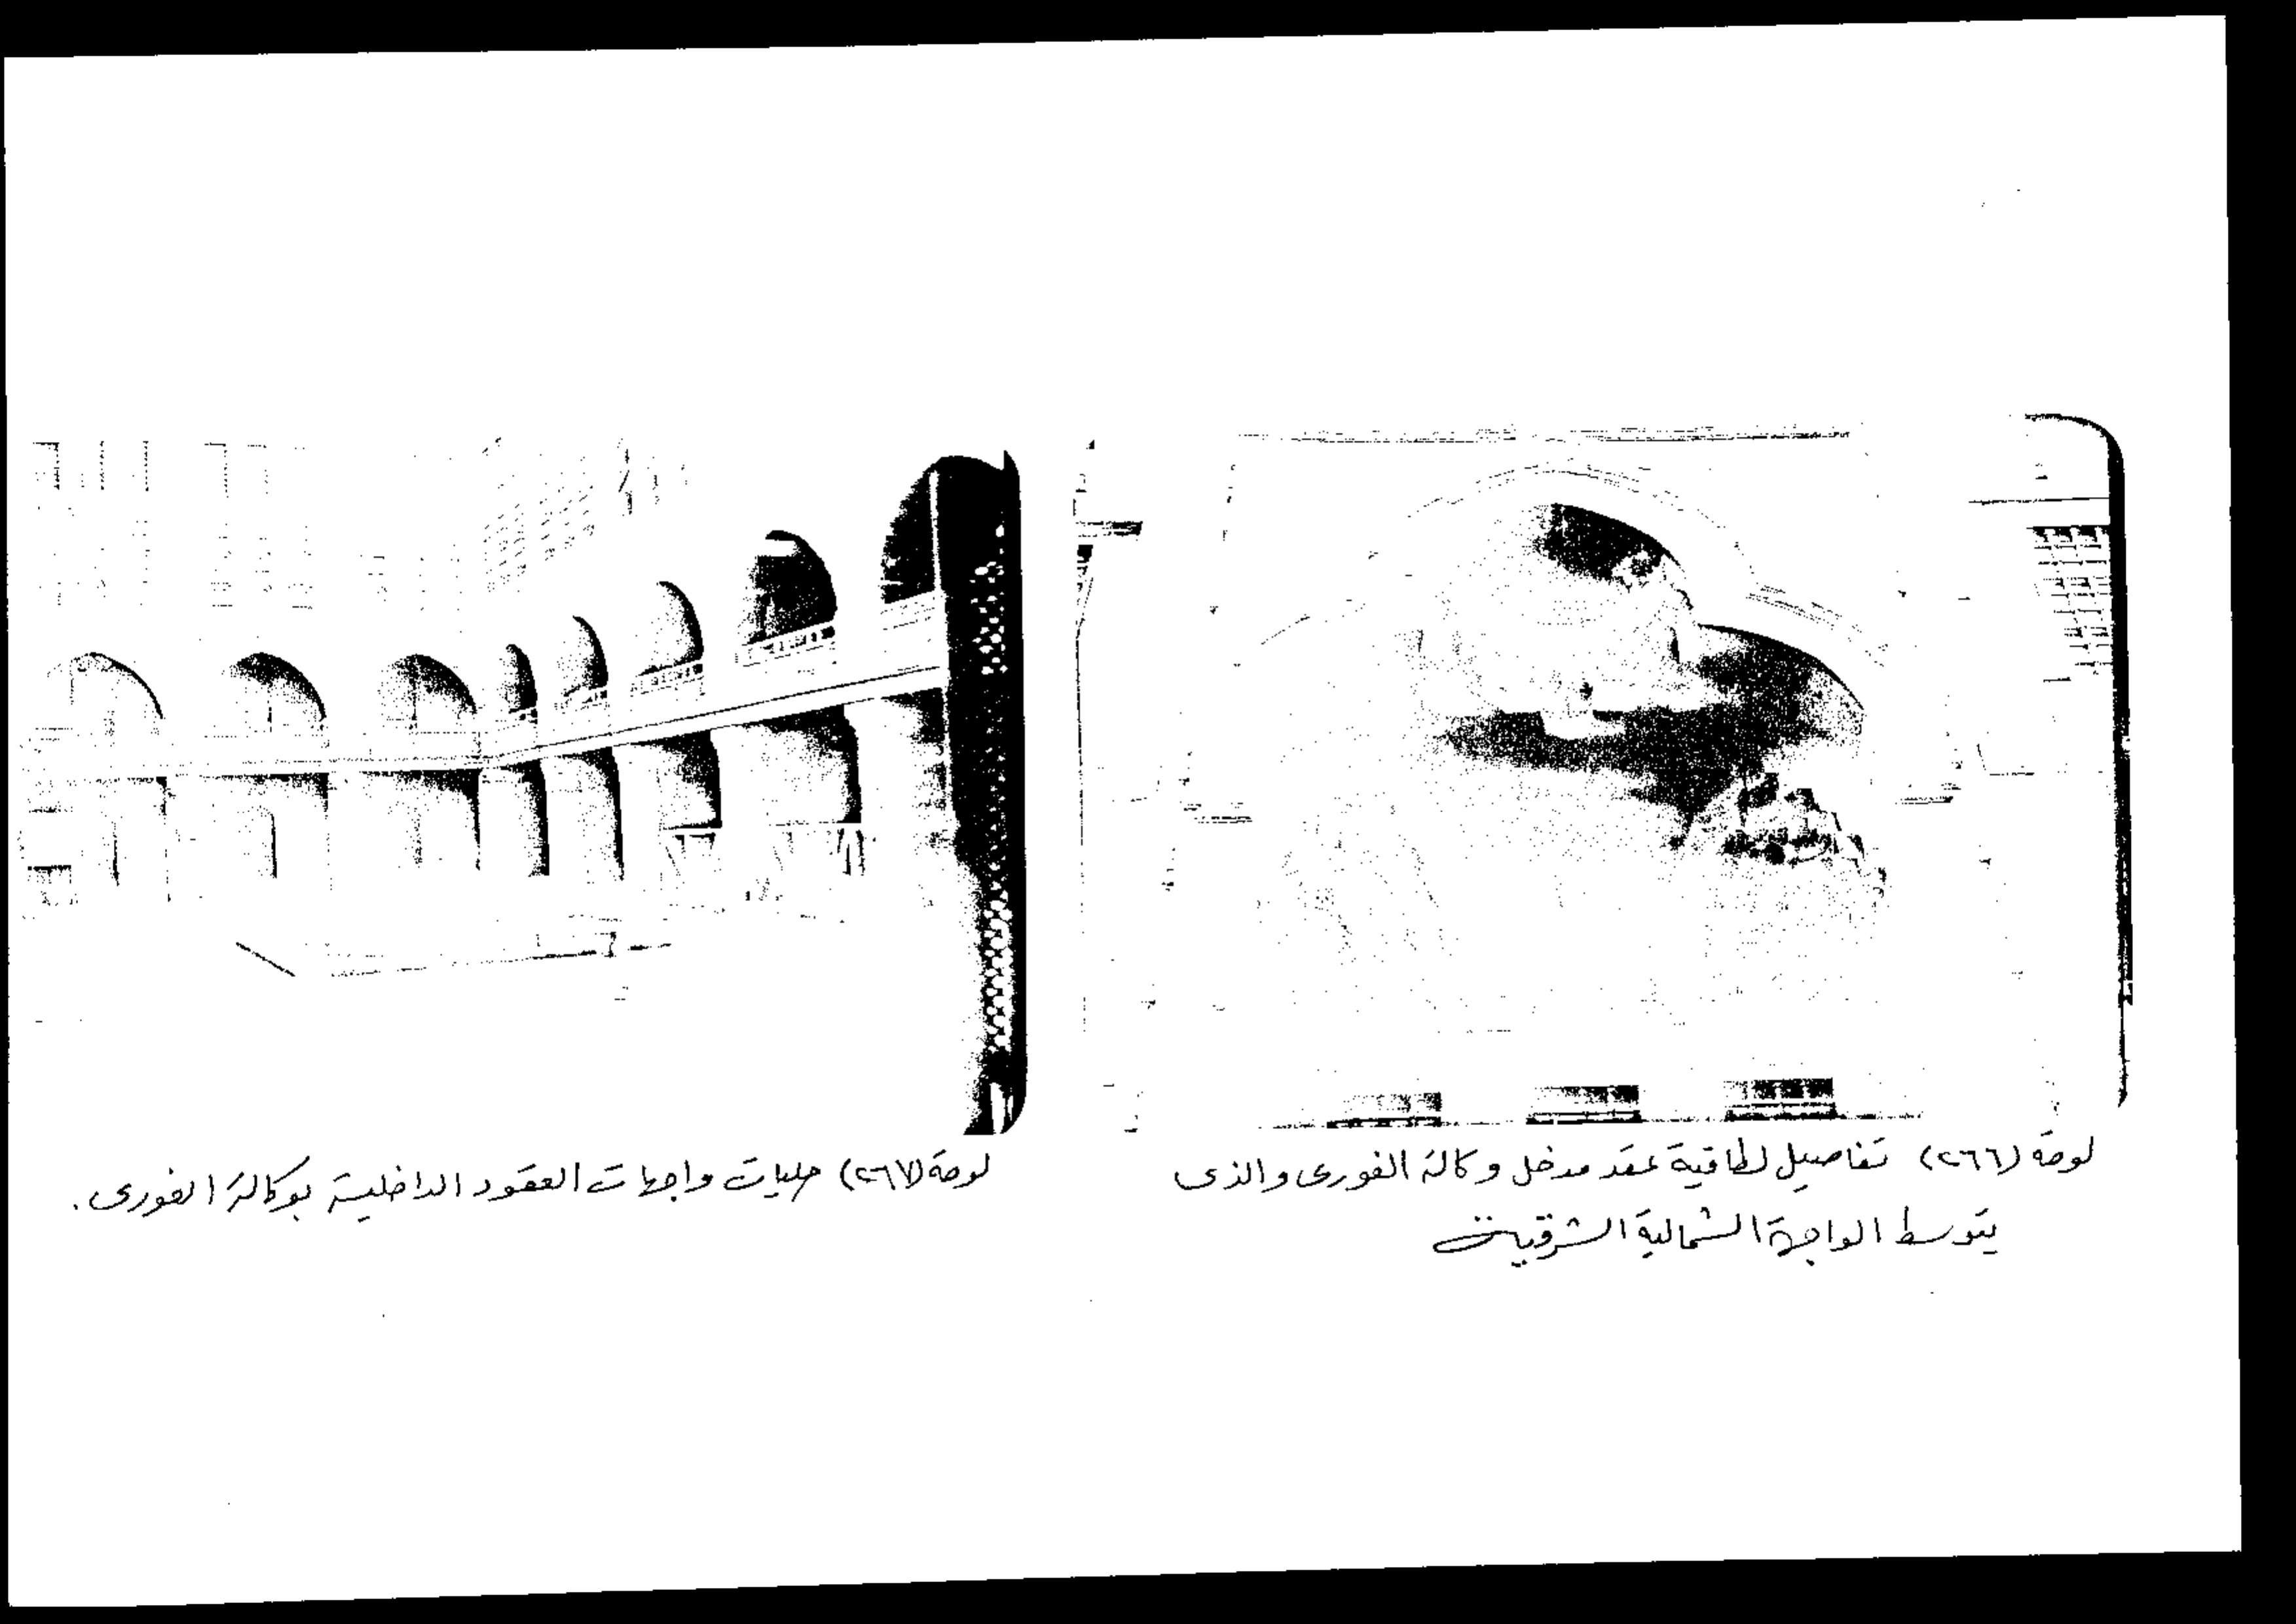 لوحة (٢٦٦) تفاصيل لطاقية عقد مدخل وكالة الغورى والذى
يتوسط الواجهة الشمالية الشرقية
لوحة (٢٦٧) حليات واجهات العقود الداخلية بوكالة الغورى.